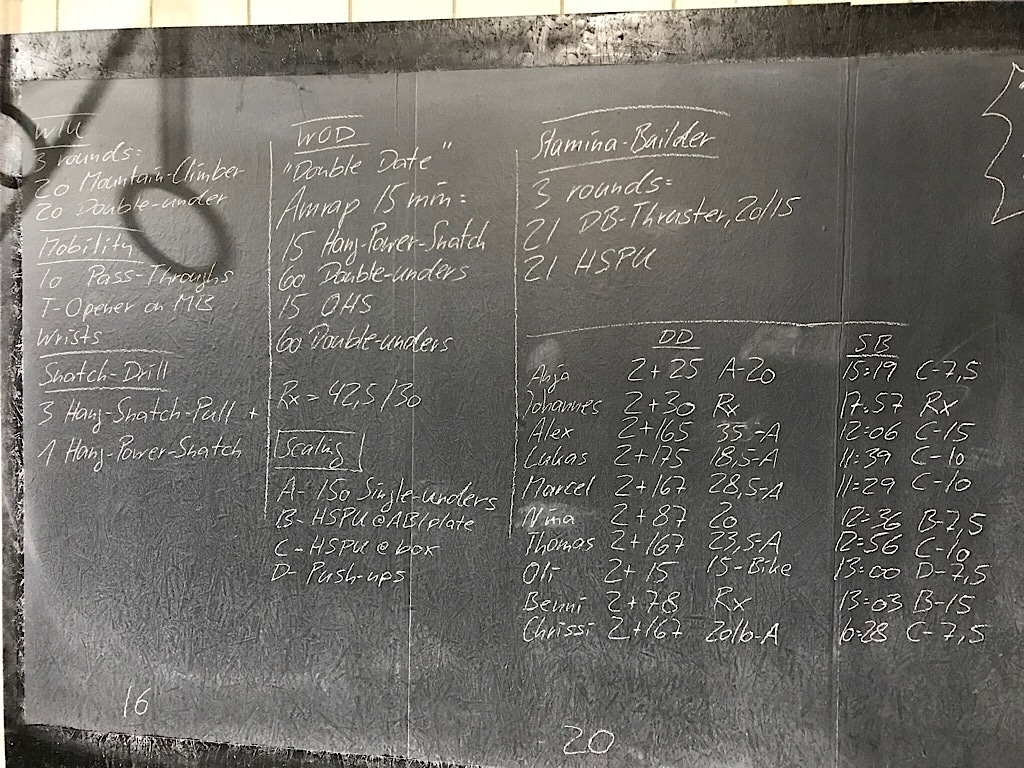 WIU
3 rounds:
20 Mountain-Climber
20 Double-under
Mobility
10 Pass-Throughs
T-Opener on MB
Wrists
Snatch-Drill
3 Hang-Snatch-Pull +
1 Hang-Power-Snatch
16
WOD
"Double Date"
Amrap 15 min:
15 Hang-Power-Snatch
60 Double-unders
15 OHS
60 Double-unders
Rx = 42,5/30
Scaling
A- 150 Single-unders
B- HSPU @ AB/plate
C- HSPU @ box
D- Push-ups
Stamina-Builder
3 rounds:
21 DB-Thruster, 20/15
21 HSPU
DD SB
Anja 2+25 A-20 15:19 C-7,5
Johannes 2+30 Rx 17:57 Rx
Alex 2+165 35-A 12:06 C-15
Lukas 2+175 18,5-A 11:39 C-10
Marcel 2+167 28,5-A 11:29 C-10
Nina 2+87 20 12:36 B-7,5
Thomas 2+167 23,5-A 12:56 C-10
Oli 2+15 15-Bike 13:00 D-7,5
Benni 2+78 Rx 13:03 B-15
Chrissi 2+167 20lb-A C-7,5
20